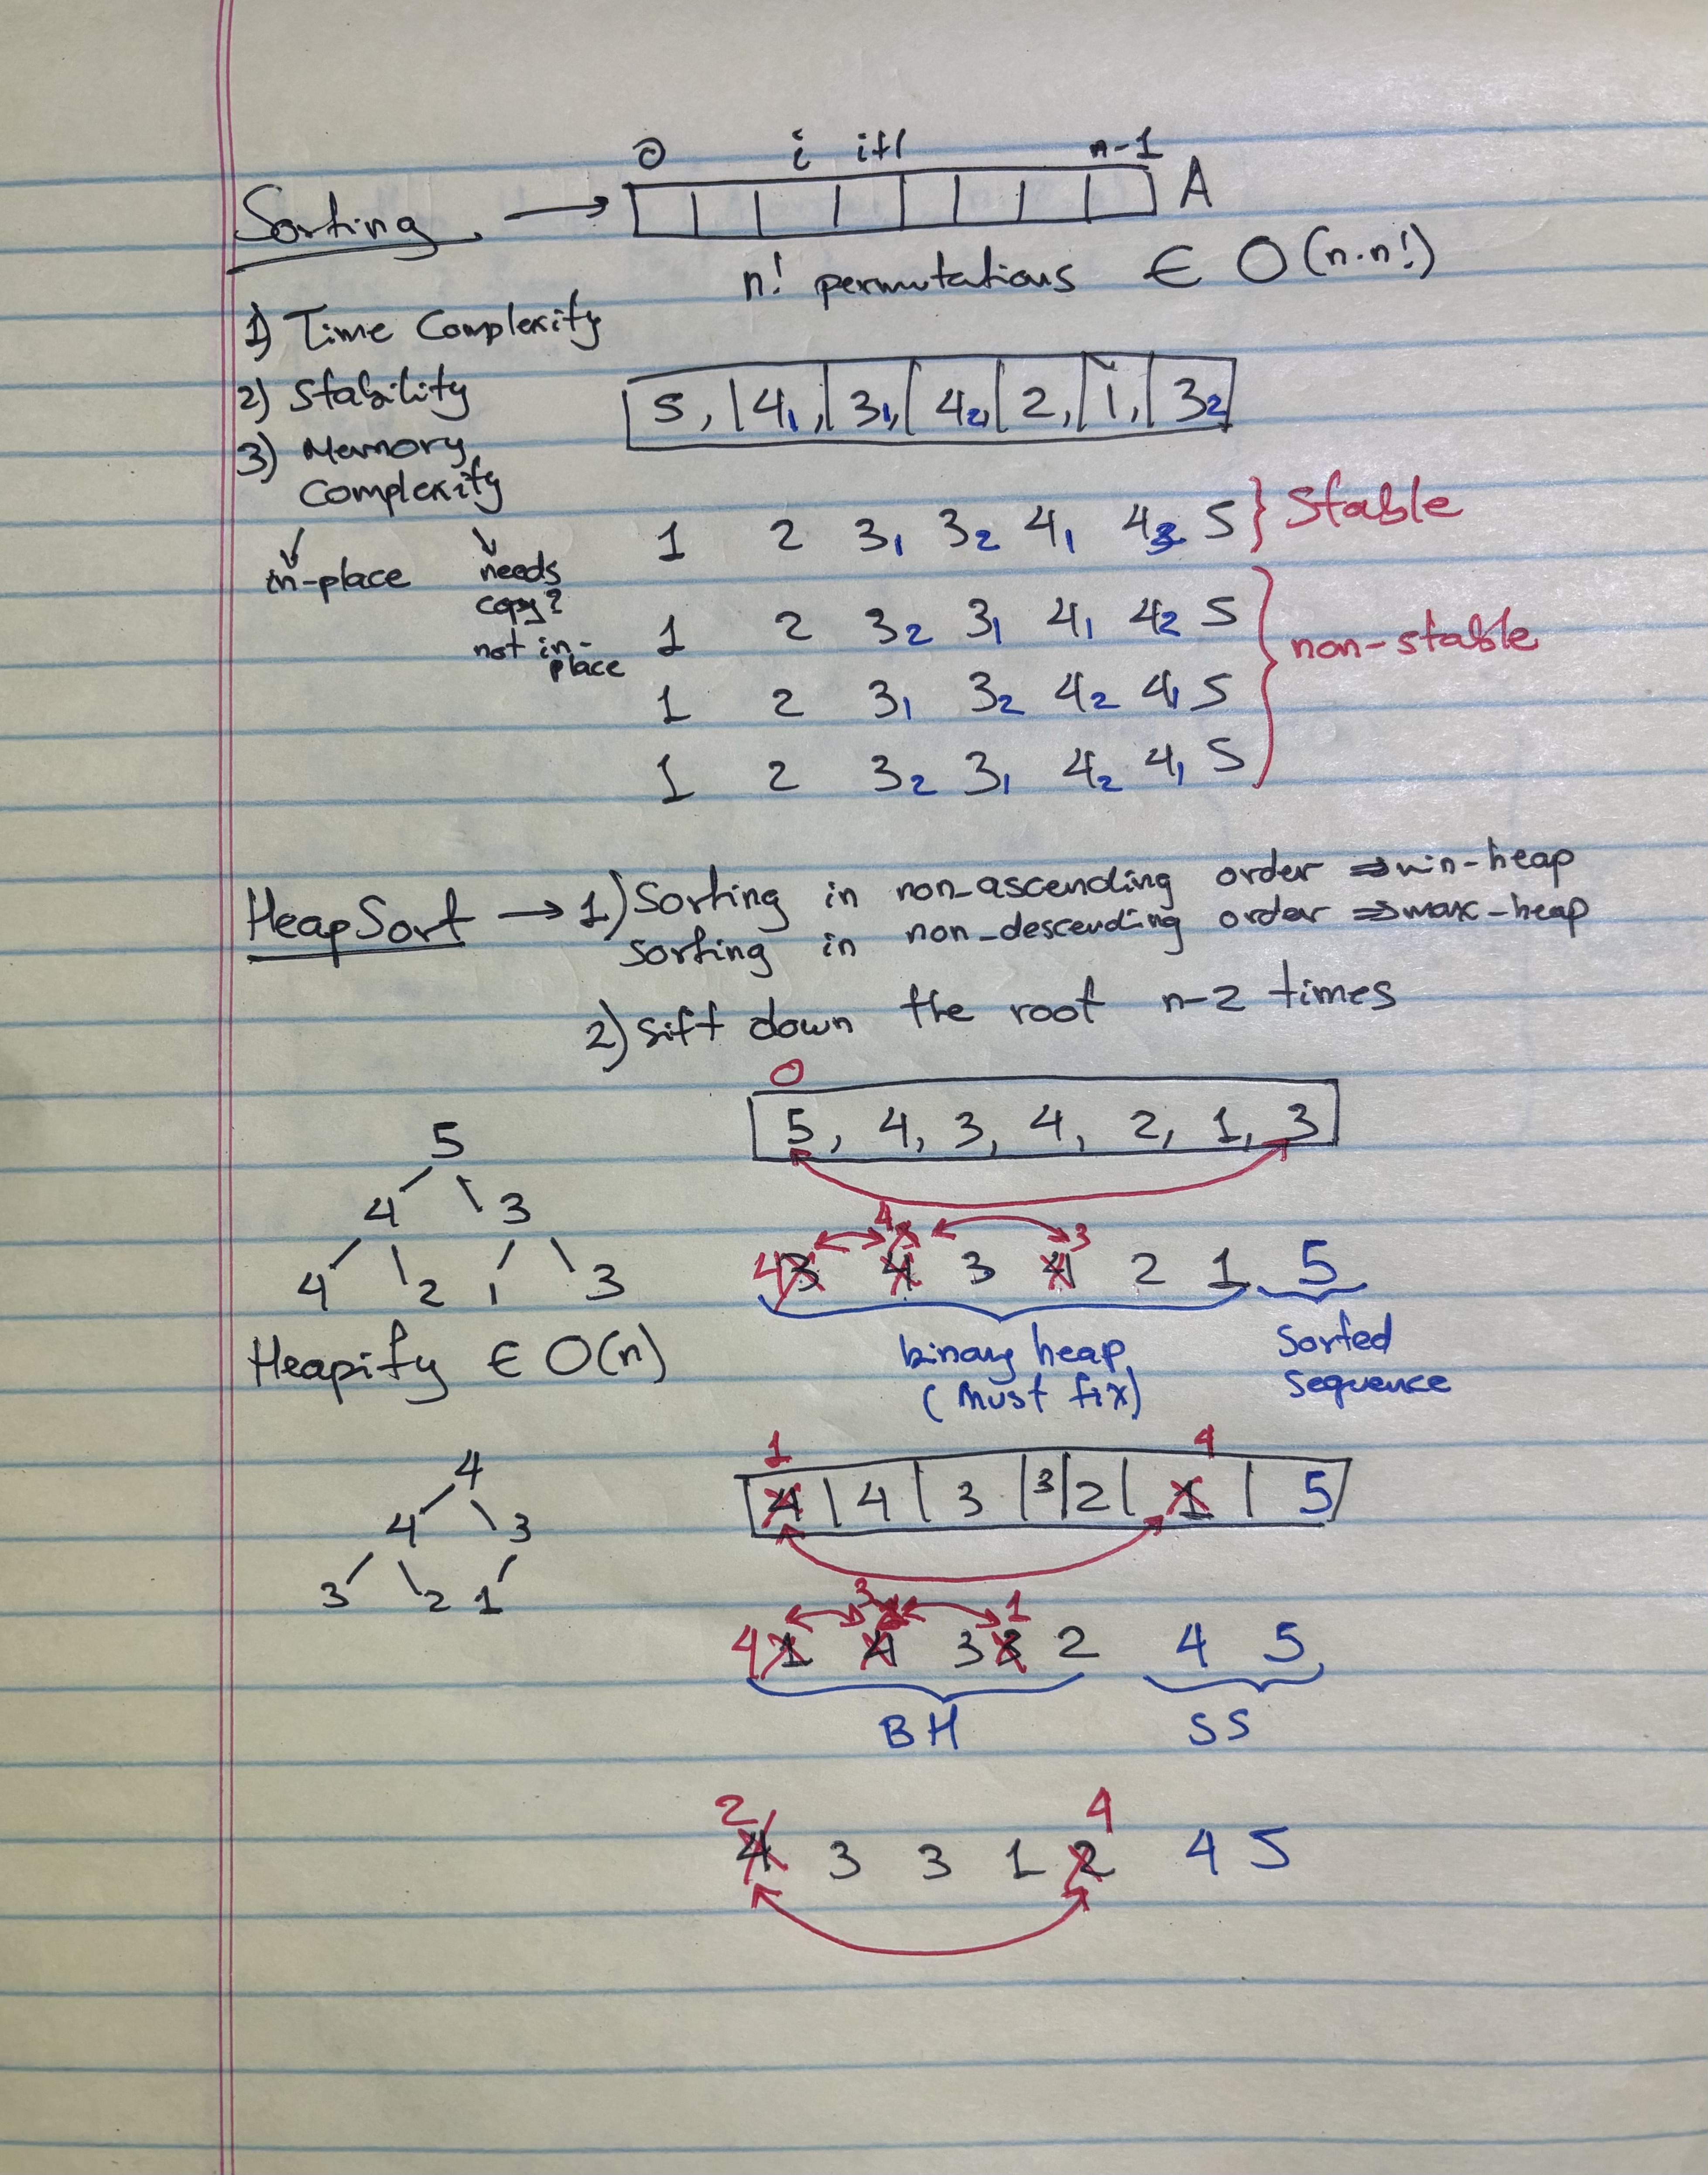 0 i i+1 n-1
Sorting → A
n! permutations ∈ O(n·n!)
1) Time Complexity
2) Stability
5, 4₁, 3₁, 4₂, 2, 1, 3₂
3) Memory
Complexity
in-place
needs
copy?
not in-
place
1 2 3₁ 3₂ 4₁ 4₂ 5 } Stable
1 2 3₂ 3₁ 4₁ 4₂ 5
1 2 3₁ 3₂ 4₂ 4₁ 5
1 2 3₂ 3₁ 4₂ 4₁ 5
} non-stable
HeapSort → 1) Sorting in non-ascending order ⇒ min-heap
Sorting in non-descending order ⇒ max-heap
2) Sift down the root n-2 times
0
5, 4, 3, 4, 2, 1, 3
5
4 3
4 2 1 3
Heapify ∈ O(n)
4 3
4 3 4 3 4 2 1 5
binary heap
(Must fix)
Sorted
Sequence
1 4
4 4 3 3 2 1 5
4
4 3
3 2 1
3 1
4 1 4 3 3 2 4 5
BH SS
2 4
4 3 3 1 2 4 5